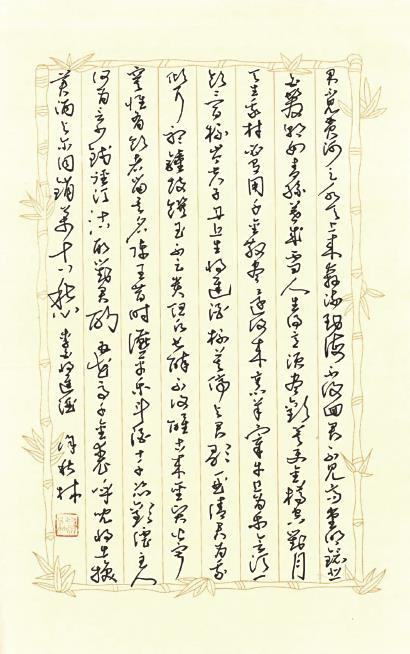 君不见黄河之水天上来奔流到海不復回君不见高堂明镜悲
白髮朝如青丝暮成雪人生得意须尽歡莫使金樽空對月
天生我材必有用千金散尽还復来烹羊宰牛且为乐會須一
飲三百杯岑夫子丹丘生将进酒杯莫停与君歌一曲请君为我
倾耳聽鐘鼓馔玉不足贵但願长醉不復醒古来圣贤皆寂
寞惟有飲者留其名陈王昔时宴平乐斗酒十千恣歡謔主人
何为言少钱径须沽取對君酌五花马千金裘呼儿将出换
美酒与尔同销萬古愁 将进酒 林